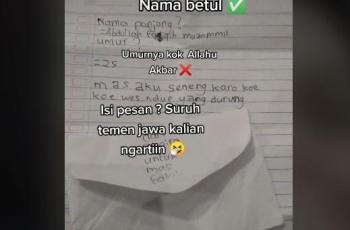 Nama betul ✅
Nama panjang?
=Abdullah muammil
umur?
Umurnya kok Allahu
Akbar ❌
=25
mas aku seneng karo koe
koe wes ndue uang durung
Isi pesan ? Suruh
temen jawa kalian
ngartiin 🤧
untuk
mas